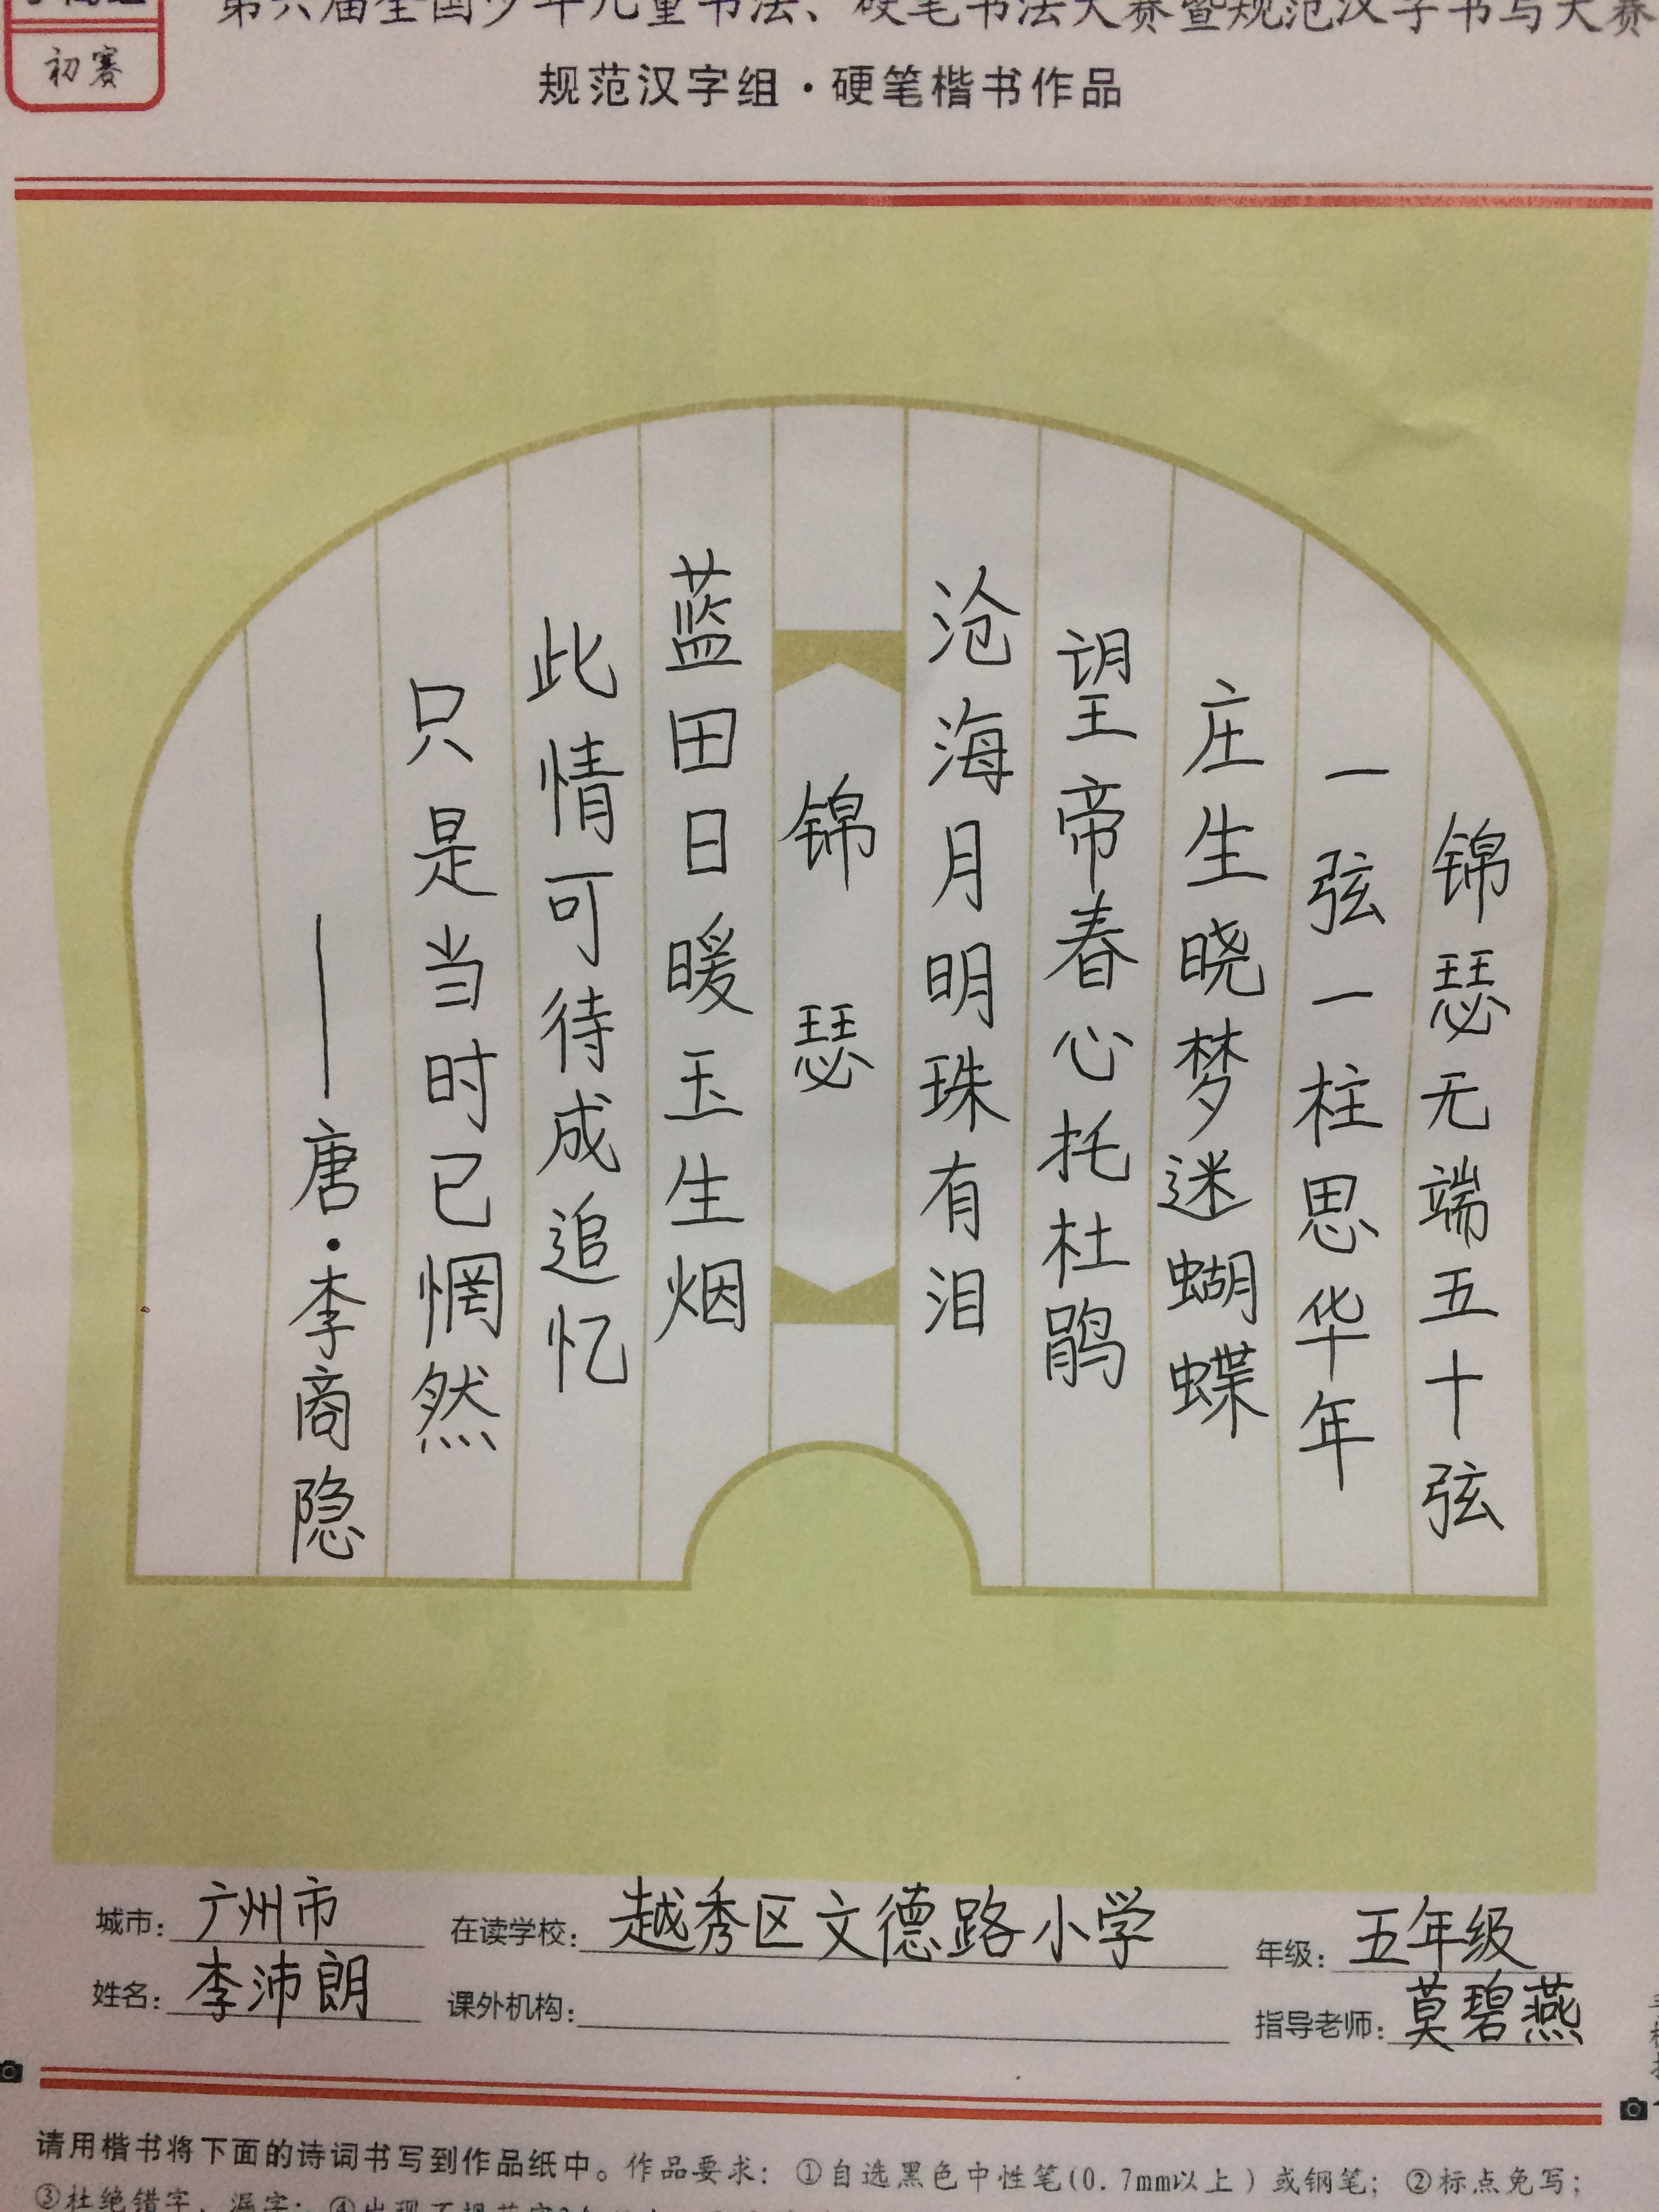 初赛
第六届全国少年儿童书法、硬笔书法大赛暨规范汉字书写大赛
规范汉字组·硬笔楷书作品
锦瑟无端五十弦
一弦一柱思华年
庄生晓梦迷蝴蝶
望帝春心托杜鹃
沧海月明珠有泪
锦瑟
蓝田日暖玉生烟
此情可待成追忆
只是当时已惘然
——唐·李商隐
城市：广州市 在读学校：越秀区文德路小学 年级：五年级
姓名：李沛朗 课外机构： 指导老师：莫碧燕
请用楷书将下面的诗词书写到作品纸中。作品要求：①自选黑色中性笔(0.7mm以上)或钢笔；②标点免写；
③杜绝错字、漏字；